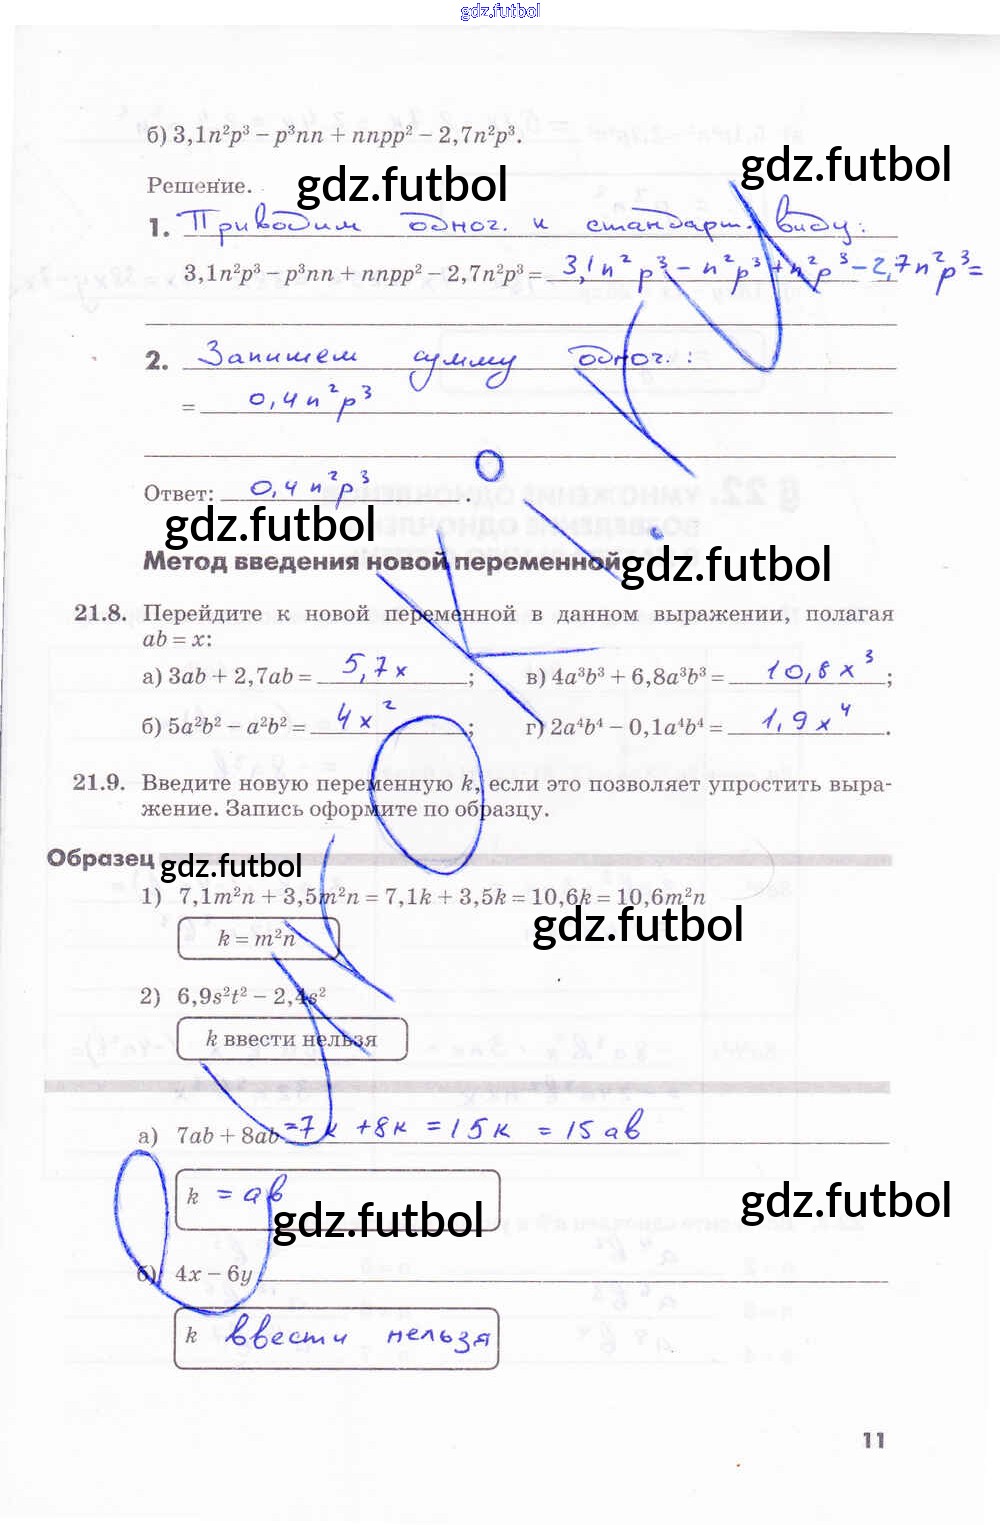 gdz.futbol
б) 3,1n²p³ – p³nn + nnpp² – 2,7n²p³.
gdz.futbol
Решение.
gdz.futbol
1. Приводим одноч. к стандарт. виду:
3,1n²p³ – p³nn + nnpp² – 2,7n²p³ = 3,1n²p³ – n²p³ + n²p³ – 2,7n²p³ =
2. Запишем сумму одноч.:
= 0,4n²p³
Ответ: 0,4n²p³.
gdz.futbol
Метод введения новой переменной
gdz.futbol
21.8. Перейдите к новой переменной в данном выражении, полагая
ab = x:
а) 3ab + 2,7ab = 5,7x; в) 4a³b³ + 6,8a³b³ = 10,8x³;
б) 5a²b² – a²b² = 4x²; г) 2a⁴b⁴ – 0,1a⁴b⁴ = 1,9x⁴.
21.9. Введите новую переменную k, если это позволяет упростить выра-
жение. Запись оформите по образцу.
Образец
gdz.futbol
1) 7,1m²n + 3,5m²n = 7,1k + 3,5k = 10,6k = 10,6m²n
gdz.futbol
k = m²n
2) 6,9s²t² – 2,4s²
k ввести нельзя
а) 7ab + 8ab = 7k + 8k = 15k = 15ab
k = ab
gdz.futbol
gdz.futbol
б) 4x – 6y
k ввести нельзя
11